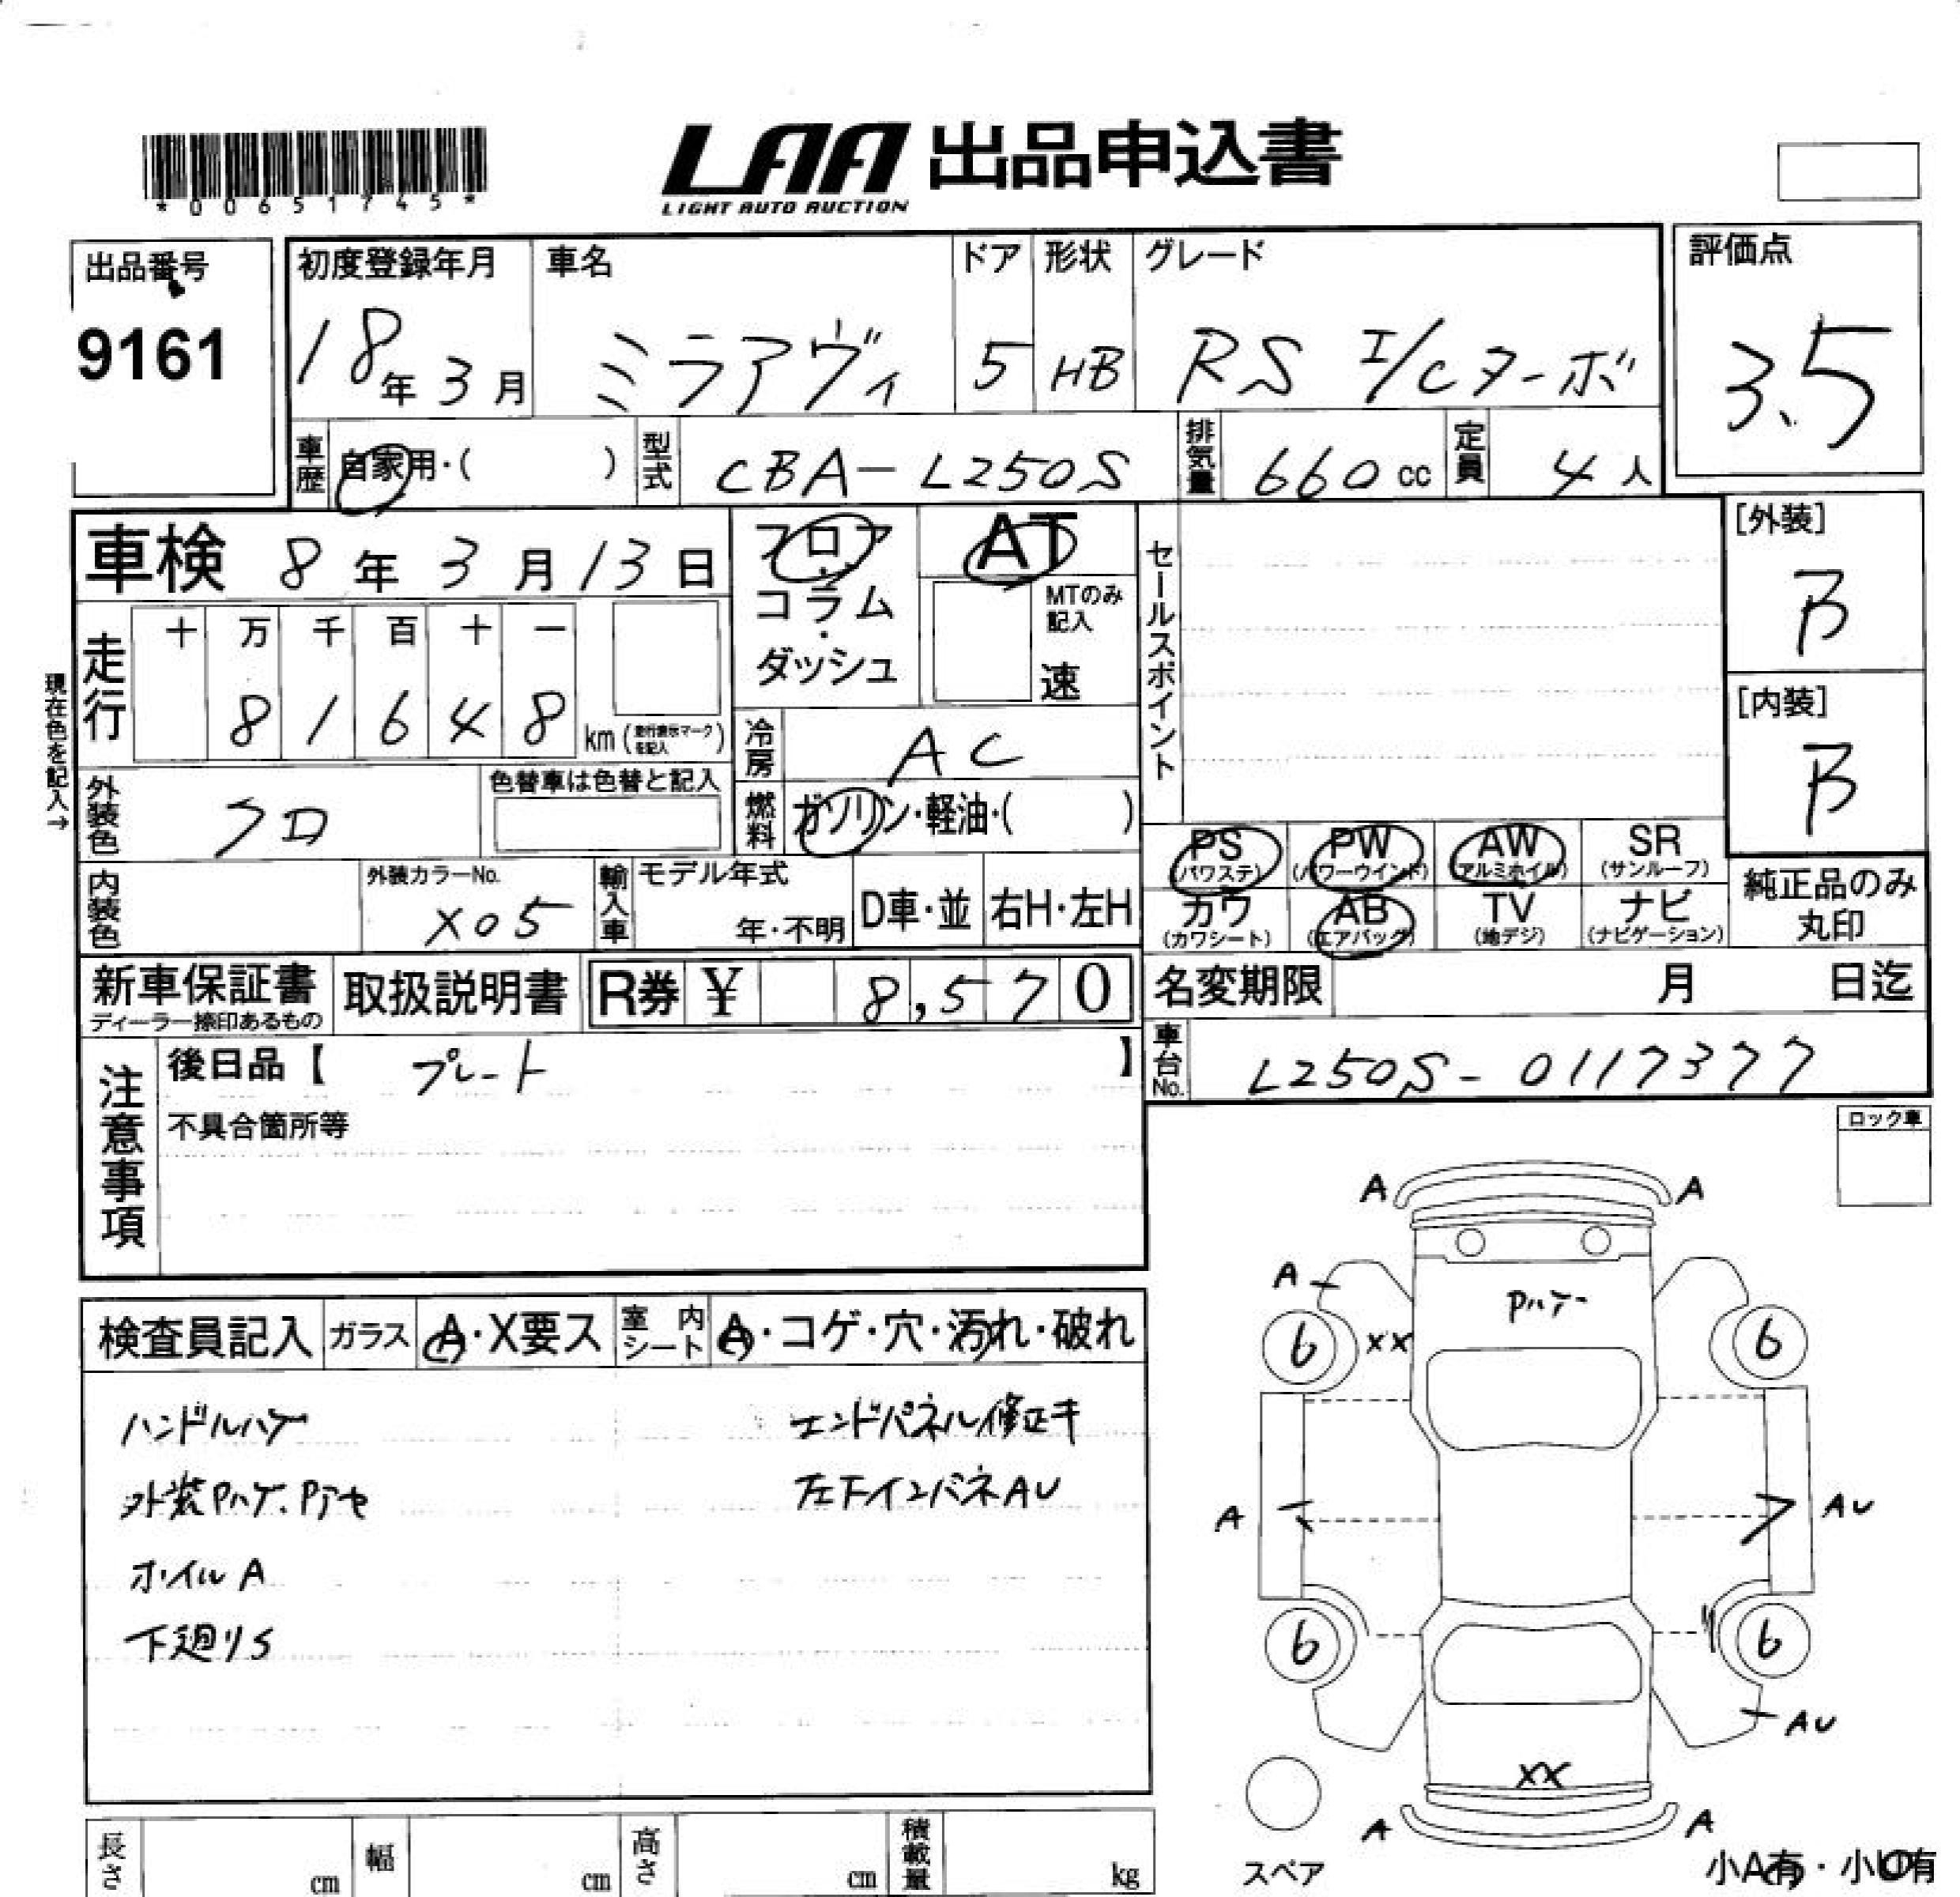 *00651745*
LAA 出品申込書
LIGHT AUTO AUCTION
出品番号
9161
初度登録年月
18年3月
車名
ミラアヴィ
ドア
5
形状
HB
グレード
RS I/Cターボ
評価点
3.5
車歴
自家用・( )
型式
CBA-L250S
排気量
660cc
定員
4人
車検 8年3月13日
フロア・コラム・ダッシュ
AT
MTのみ記入
速
セールスポイント
[外装]
B
[内装]
B
現在色を記入→
走行
十 万 千 百 十 一
8 1 6 4 8
km (走行表示マークを記入)
冷房
AC
外装色
クロ
色替車は色替と記入
燃料
ガソリン・軽油・( )
PS
(パワステ)
PW
(パワーウインド)
AW
(アルミホイル)
SR
(サンルーフ)
カワ
(カワシート)
AB
(エアバッグ)
TV
(地デジ)
ナビ
(ナビゲーション)
純正品のみ
丸印
内装色
外装カラーNo.
X05
輸入車
モデル年式
年・不明
D車・並
右H・左H
新車保証書
ディーラー捺印あるもの
取扱説明書
R券 ¥ 8,570
名変期限 月 日迄
車台No.
L250S-0117377
注意事項
後日品【 プレート 】
不具合箇所等
ロック車
検査員記入
ガラス
A・X要ス
室内シート
A・コゲ・穴・汚れ・破れ
ハンドルハゲ
エンドパネル修正キ
外装Pハゲ、Pアセ
左下インパネAU
ホイルA
下廻りS
A A
A
Pハゲ
6 XX 6
A AU
6 6
AU
XX
A A
スペア
小A有・小U有
長さ cm
幅 cm
高さ cm
積載量 kg